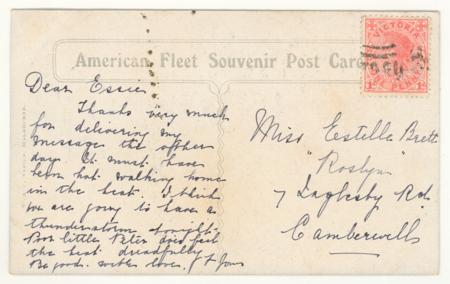 American Fleet Souvenir Post Card
VICTORIA
PENNY
Dear Essie
Thanks very much
for delivering my
message the other
day. It must have
been hot walking home
in the heat. I think
we are going to have a
thunderstorm tonight.
Poor little Peter does feel
the heat dreadfully
Be good. with love.
Miss Estelle Brett
"Roslyn"
7 Rd.
Camberwell